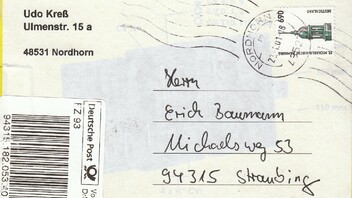 Udo Kreß
Ulmenstr. 15 a
48531 Nordhorn
NORDHORN
690
DEUTSCHLAND
Herrn
Erich Baumann
Michaelsweg 53
94315 Straubing
Deutsche Post
FZ 93